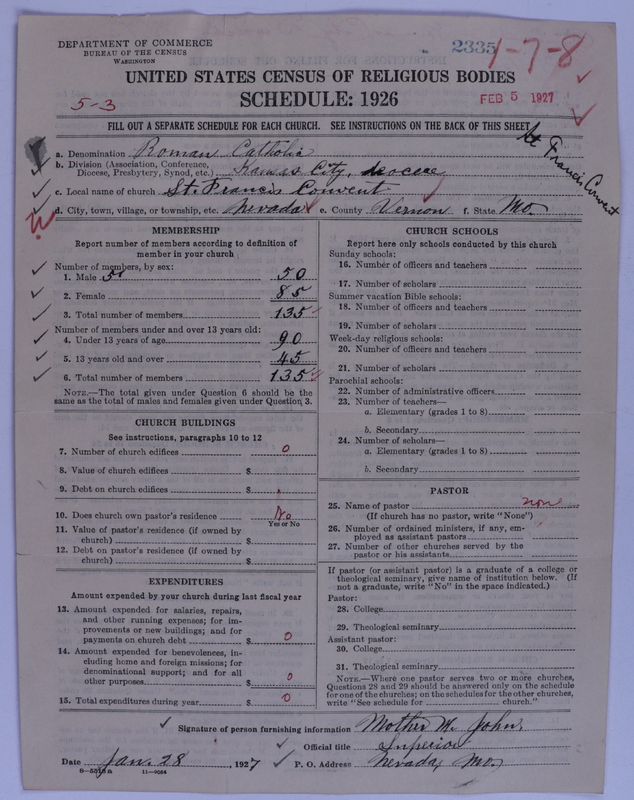 DEPARTMENT OF COMMERCE
BUREAU OF THE CENSUS
WASHINGTON
2335
1-7-8
UNITED STATES CENSUS OF RELIGIOUS BODIES
5-3
SCHEDULE: 1926
FEB 5 1927
FILL OUT A SEPARATE SCHEDULE FOR EACH CHURCH. SEE INSTRUCTIONS ON THE BACK OF THIS SHEET
St Francis Convent
a. Denomination Roman Catholic
b. Division (Association, Conference, Diocese, Presbytery, Synod, etc.) Kansas City, diocese
c. Local name of church St. Francis Convent
d. City, town, village, or township, etc. Nevada e. County Vernon f. State Mo.
MEMBERSHIP
Report number of members according to definition of
member in your church
Number of members, by sex:
1. Male 50 50
2. Female 85
3. Total number of members 135
Number of members under and over 13 years old:
4. Under 13 years of age 90
5. 13 years old and over 45
6. Total number of members 135
NOTE.—The total given under Question 6 should be the
same as the total of males and females given under Question 3.
CHURCH BUILDINGS
See instructions, paragraphs 10 to 12
7. Number of church edifices 0
8. Value of church edifices $
9. Debt on church edifices $
10. Does church own pastor's residence No
Yes or No
11. Value of pastor's residence (if owned by
church) $
12. Debt on pastor's residence (if owned by
church) $
EXPENDITURES
Amount expended by your church during last fiscal year
13. Amount expended for salaries, repairs,
and other running expenses; for im-
provements or new buildings; and for
payments on church debt $ 0
14. Amount expended for benevolences, in-
cluding home and foreign missions; for
denominational support; and for all
other purposes $ 0
15. Total expenditures during year $ 0
CHURCH SCHOOLS
Report here only schools conducted by this church
Sunday schools:
16. Number of officers and teachers
17. Number of scholars
Summer vacation Bible schools:
18. Number of officers and teachers
19. Number of scholars
Week-day religious schools:
20. Number of officers and teachers
21. Number of scholars
Parochial schools:
22. Number of administrative officers
23. Number of teachers—
a. Elementary (grades 1 to 8)
b. Secondary
24. Number of scholars—
a. Elementary (grades 1 to 8)
b. Secondary
PASTOR
25. Name of pastor none
(If church has no pastor, write "None")
26. Number of ordained ministers, if any, em-
ployed as assistant pastors
27. Number of other churches served by the
pastor or his assistants
If pastor (or assistant pastor) is a graduate of a college or
theological seminary, give name of institution below. (If
not a graduate, write "No" in the space indicated.)
Pastor:
28. College
29. Theological seminary
Assistant pastor:
30. College
31. Theological seminary
NOTE.—Where one pastor serves two or more churches,
Questions 28 and 29 should be answered only on the schedule
for one of the churches; on the schedules for the other churches,
write "See schedule for church."
Signature of person furnishing information Mother M. John.
Official title Superior
Date Jan. 28, 1927 P. O. Address Nevada, Mo.
11—9564